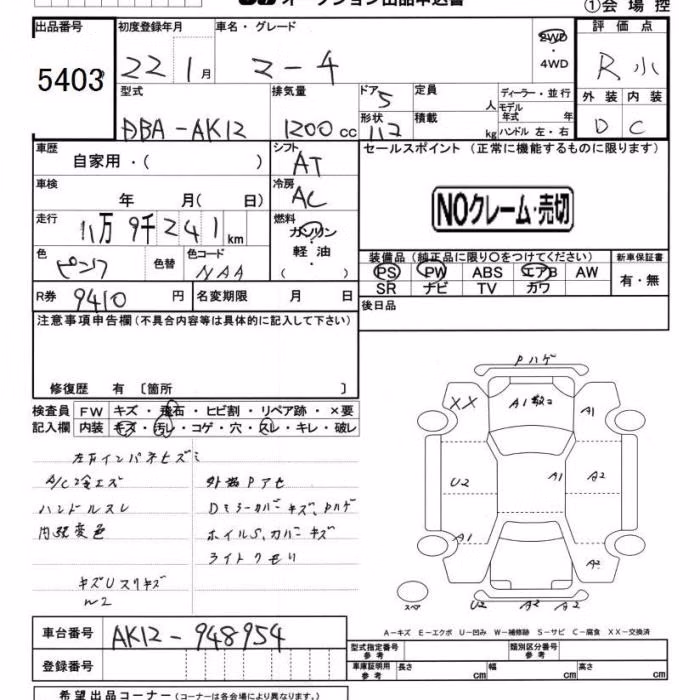 オークション出品申込書
①会場控
出品番号 初度登録年月 車名・グレード 評価点
5403 22 1月 マーチ 2WD・4WD R小
型式 排気量 ドア 定員 ディーラー・並行 外装 内装
DBA-AK12 1200cc 5 人 モデル年式 年 D C
形状 積載
112 kg ハンドル 左・右
車歴 シフト セールスポイント（正常に機能するものに限ります）
自家用・( ) AT
車検 冷房
年 月( 日) AC NOクレーム・売切
走行 燃料
11万9千241km ガソリン・軽油・( )
色 色替 色コード 装備品（純正品に限り○をつけてください） 新車保証書
ピンク NAA PS PW ABS エアB AW 有・無
SR ナビ TV カワ
R券 9410円 名変期限 月 日 後日品
注意事項申告欄（不具合内容等は具体的に記入して下さい）
修復歴 有〔箇所 〕
検査員 FW キズ・飛石・ヒビ割・リペア跡・×要
記入欄 内装 キズ・汚レ・コゲ・穴・スレ・キレ・破レ
左右インパネヒズミ
ハンドルスレ
内張変色
外装Pアセ
Dミラーカバーキズ、Pハゲ
ホイルS、カバーキズ
ライトクモリ
キズUスリキズ
W2
Pハゲ
XX
A1数コ
A1
U2
A1
A2
A1
A2
スペア
U2 A2 A2
A-キズ E-エクボ U-凹み W-補修跡 S-サビ C-腐食 XX-交換済
車台番号 AK12-948954
型式指定番号 参考 類別区分番号 参考
登録番号
車庫証明用 参考 長さ cm 幅 cm 高さ cm
希望出品コーナー（コーナーは各会場により異なります。）